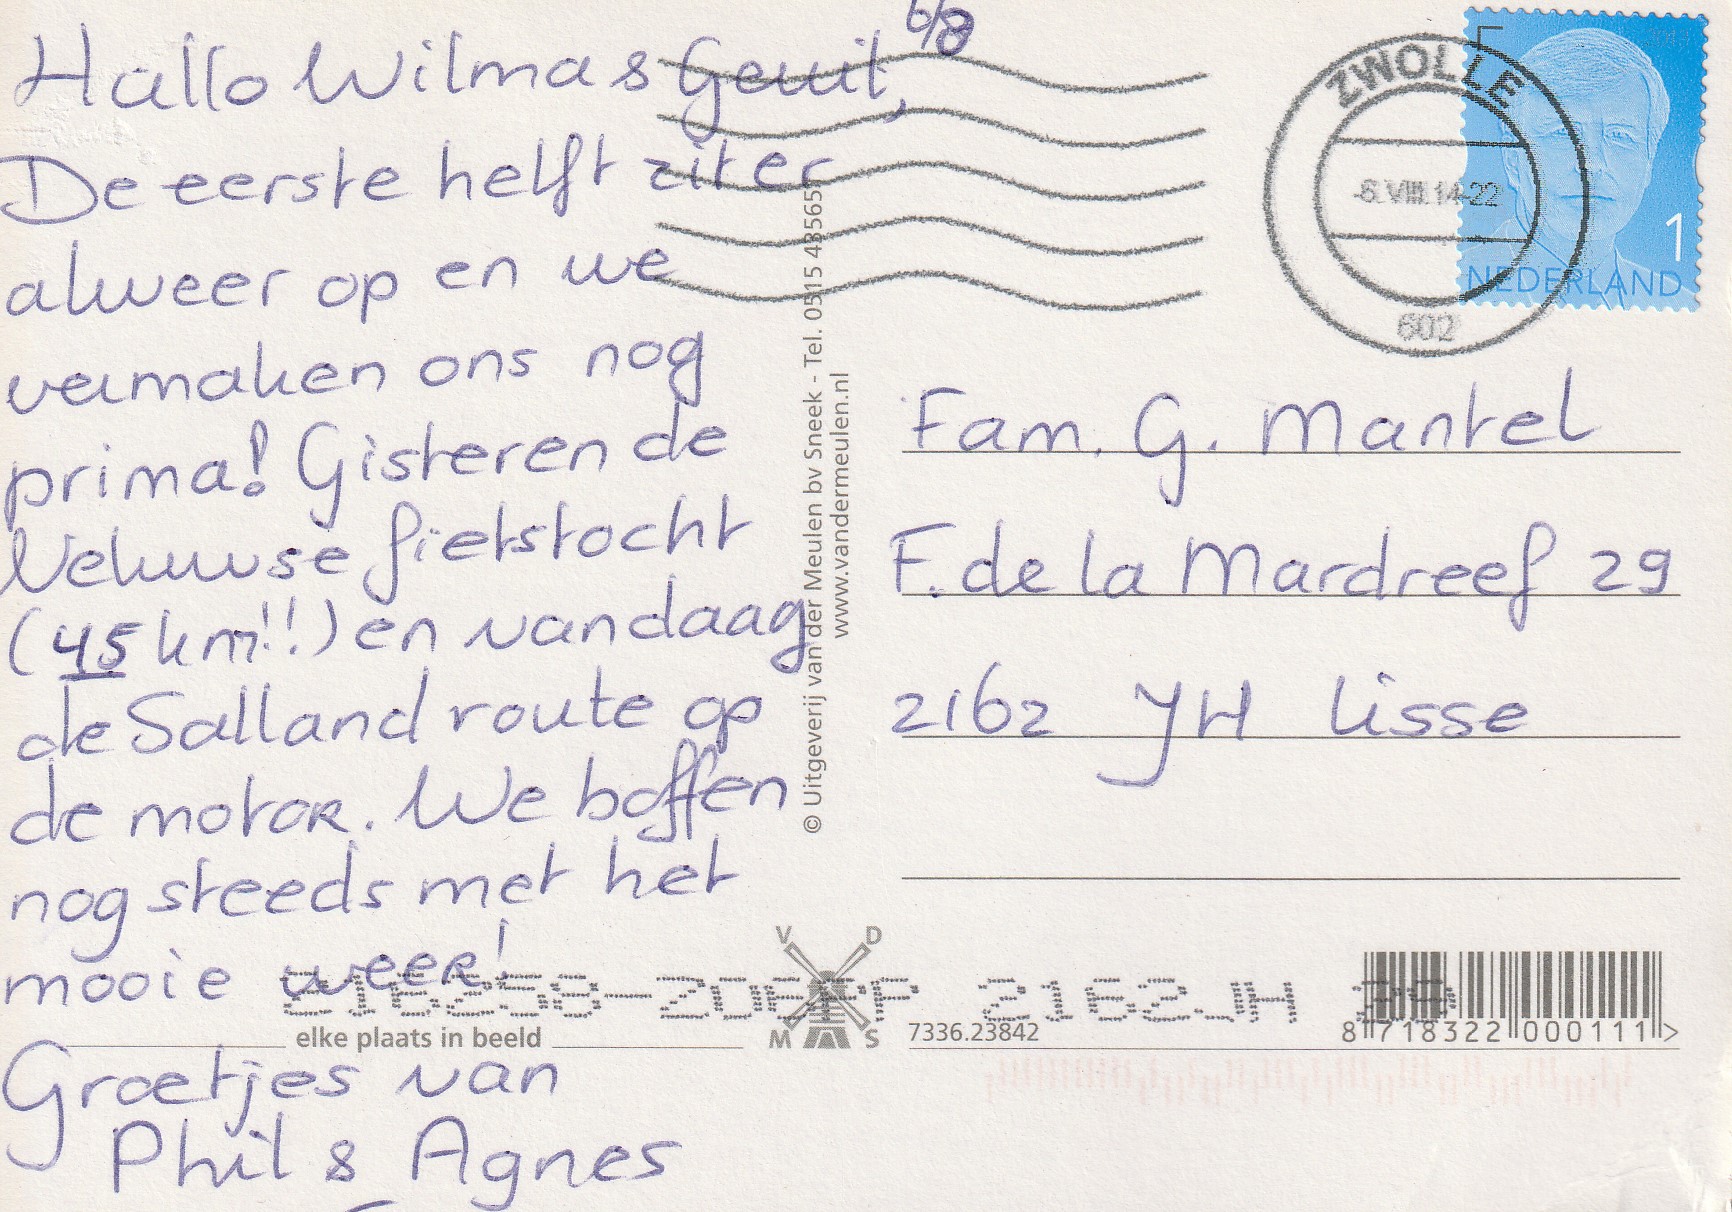 6/8
Hallo Wilma & Gerrit,
De eerste helft zit er
alweer op en we
vermaken ons nog
prima! Gisteren de
Veluwse fietstocht
(45 km!!) en vandaag
de Salland route op
de motor. We boffen
nog steeds met het
mooie weer!
Groetjes van
Phil & Agnes
© Uitgeverij van der Meulen bv Sneek - Tel. 0515 435655
www.vandermeulen.nl
ZWOLLE
-6.VIII.14-22
602
2013
1
NEDERLAND
Fam. G. Mantel
F. de la Mardreef 29
2162 JH Lisse
2162JH 29
V D
M S
elke plaats in beeld
7336.23842
8 718322 000111 >